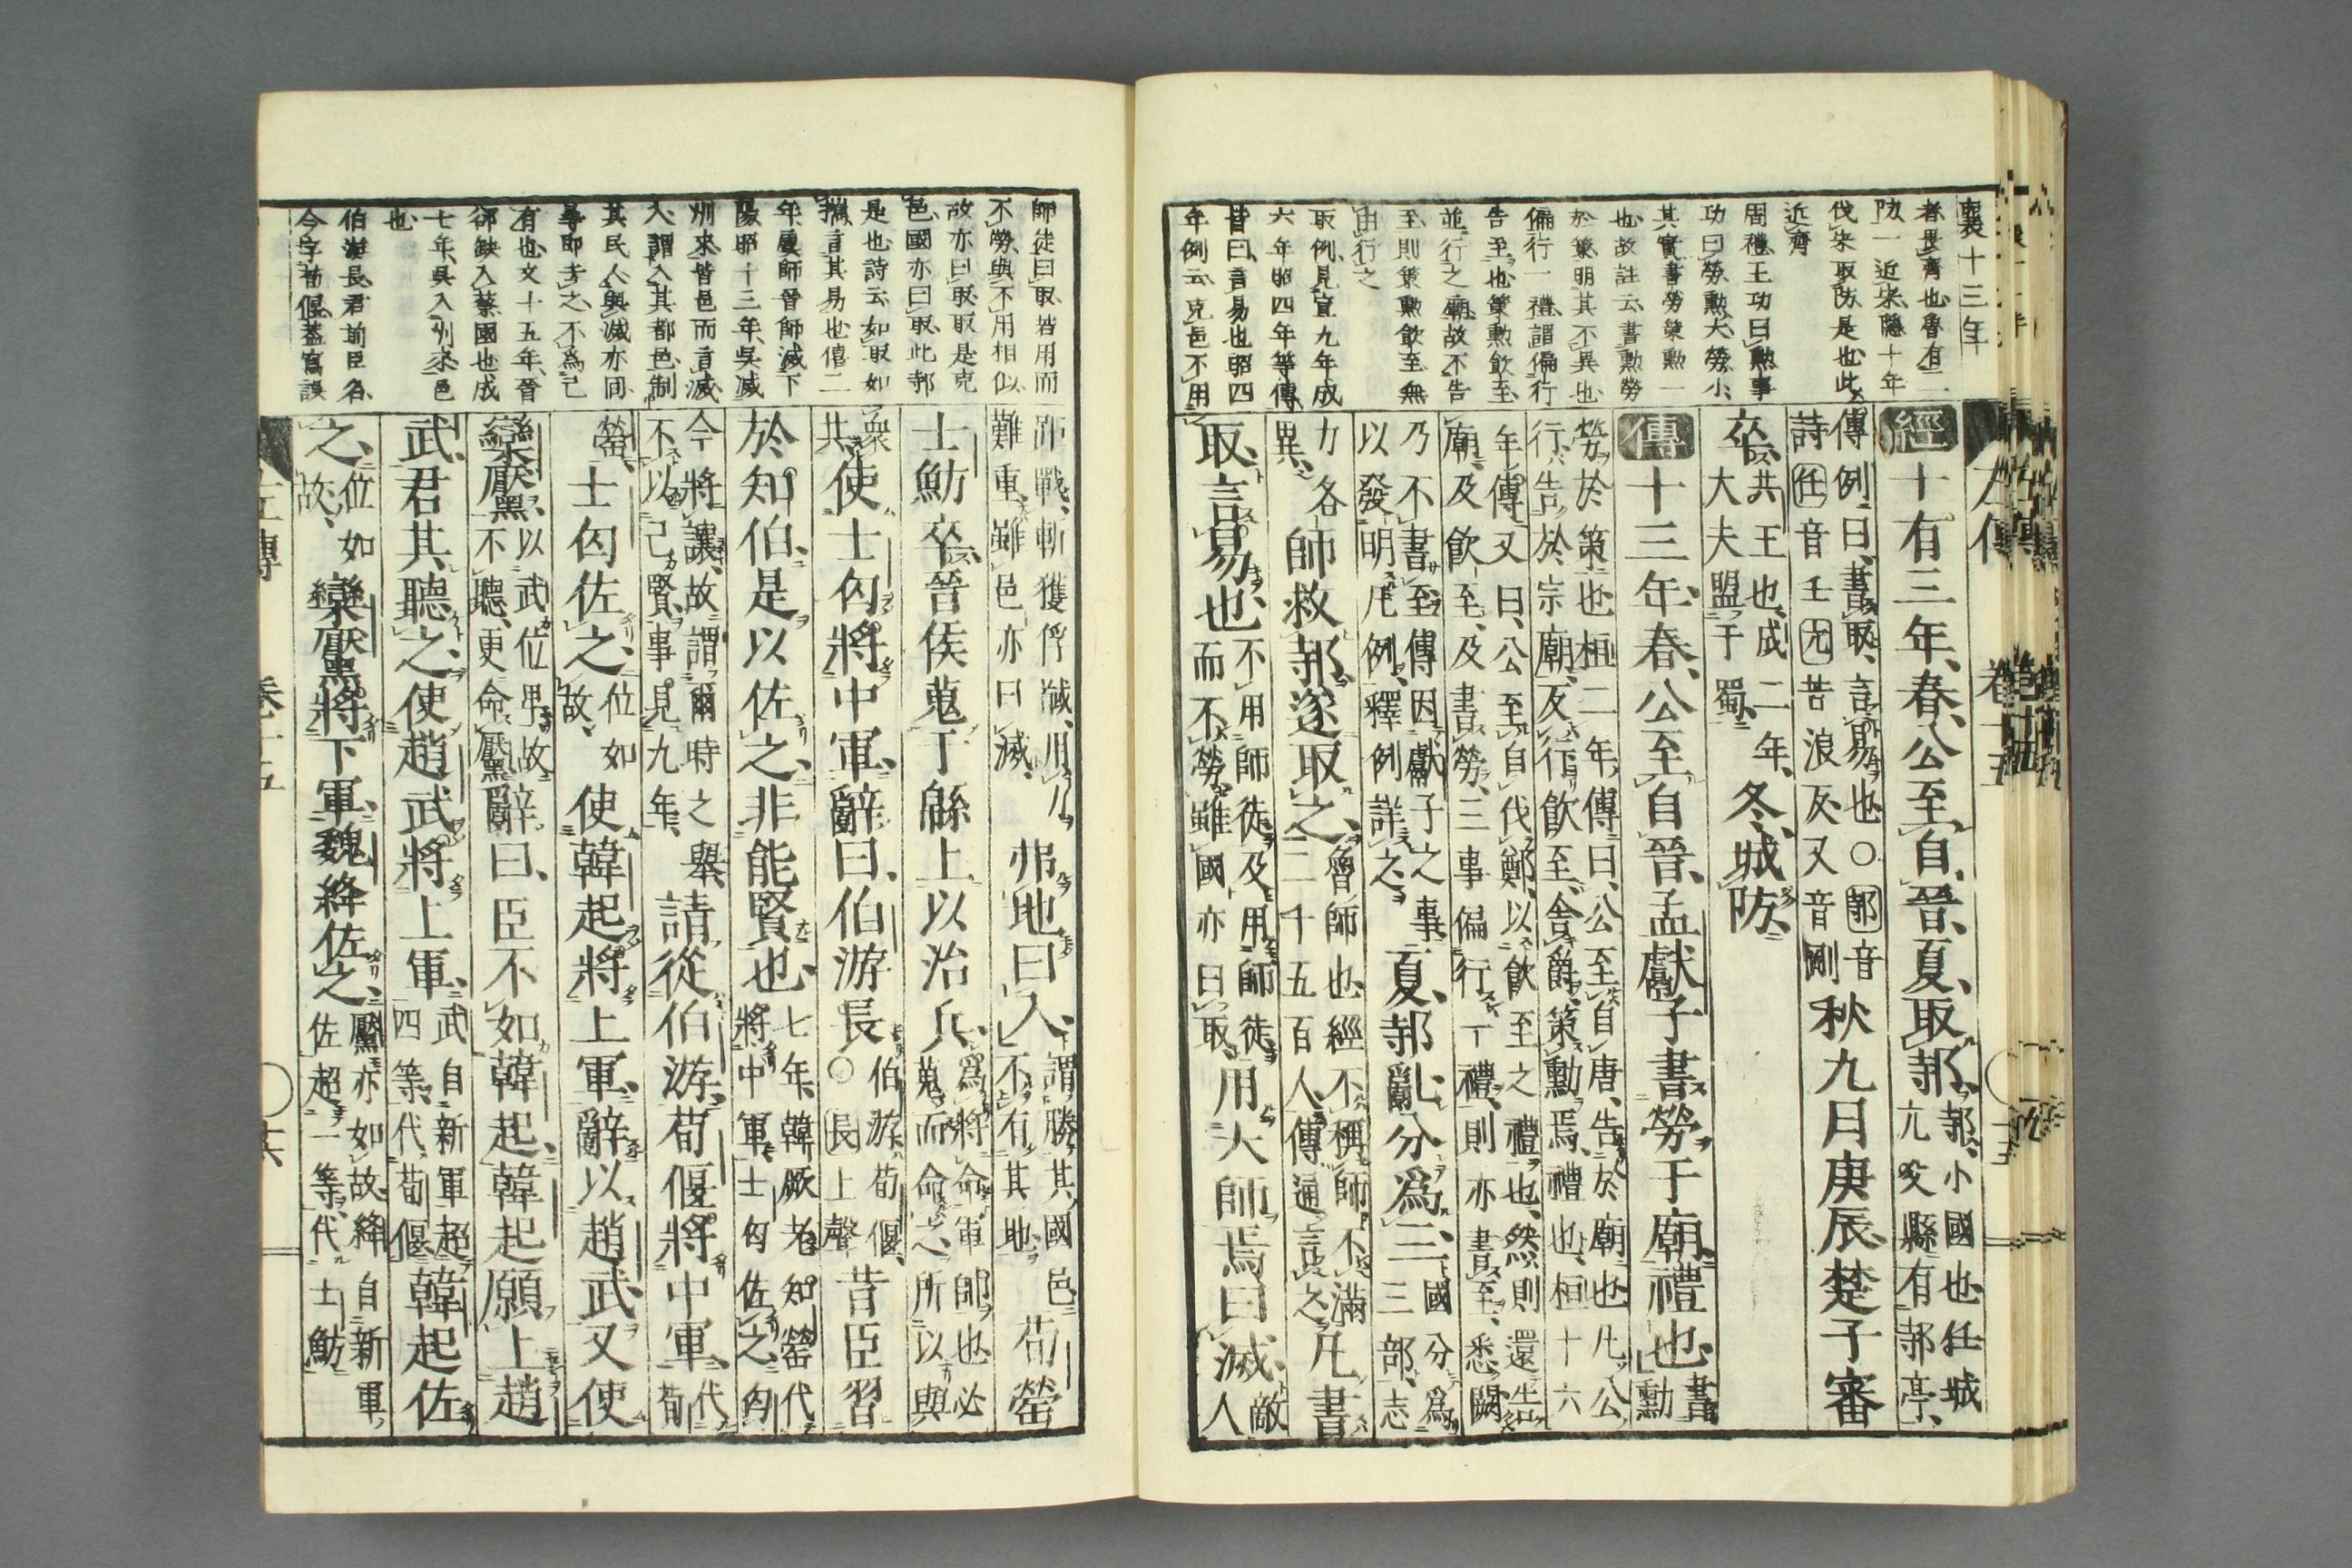 襄十三年
者畏齊也魯有二
防一近宋隱十年
伐宋取防是也此
近齊
周禮王功曰勲事
功曰勞勲大勞小
其實書勞策勲一
也故註云書勲勞
於策明其不異也
偏行一禮謂偏行
告至也策勲飲至
並行之廟故不告
至則策勲飲至無
由行之
取例見宣九年成
六年昭四年等傳
昔曰言易也昭四
年例云克邑不用
左傳 卷十五
經十有三年、春、公至自晉、夏、取邿、邿、小國也、任城亢父縣有邿亭、
傳例曰、書取、言易也、○邿音詩任音壬亢苦浪反又音剛秋九月庚辰楚子審
卒、共王也、成二年、大夫盟于蜀、冬、城防、
傳十三年、春、公至自晉、孟獻子書勞于廟、禮也、書勲
勞於策也桓二年、傳曰、公至自唐、告於廟也凡公行、告於宗廟、反行飲至、舍爵、策勲焉、禮也、桓十六
年、傳又曰、公至自伐鄭、以飲至之禮也、然則還告廟、及飲至、及書勞、三事偏行一禮、則亦書至、悉闕
乃不書至、傳因獻子之事、以發明凡例、釋例詳之、夏、邿亂、分爲三、國分爲三部、志
力各異、師救邿、遂取之、魯師也、經不稱師、不滿二千五百人、傳通言之、凡書
取、言易也、不用師徒、及用師徒、而不勞、雖國亦曰取、用大師焉曰滅、敵人
距戰、斬獲俘馘、用力難重、雖邑亦曰滅、弗地曰入、謂勝其國邑、不有其地、荀罃
士魴卒、晉侯蒐于緜上以治兵、爲將命軍帥也、必蒐而命之、所以與
衆共、使士匄將中軍、辭曰、伯游長伯游荀偃、○長上聲昔臣習
於知伯、是以佐之、非能賢也、七年、韓厥老、知罃代將中軍、士匄佐之、匄
今將讓、故謂爾時之舉、不以己賢、事見九年、請從伯游、荀偃將中軍、代荀
罃、士匄佐之、位如故、使韓起將上軍、辭以趙武、又使
欒黶、以武位卑故不聽、更命黶辭曰、臣不如韓起、韓起願上趙
武、君其聽之、使趙武將上軍、武自新軍超四等、代荀偃、韓起佐
之、位如故、欒黶將下軍、魏絳佐之、黶亦如故、絳自新軍佐超一等、代士魴
師徒曰取皆用而
不勞與不用相似
故亦曰取取是克
邑國亦曰取此邿
是也詩云如取如
攜言其易也僖二
年虞師晉師滅下
陽昭十三年吳滅
州來皆邑而言滅
入謂入其都邑制
其民人與滅亦同
尋卽去之不爲己
有也文十五年晉
郤缺入蔡國也成
七年吳入州來邑
也
伯游長君前臣名
今字荀偃蓋寫誤
左傳 卷十五